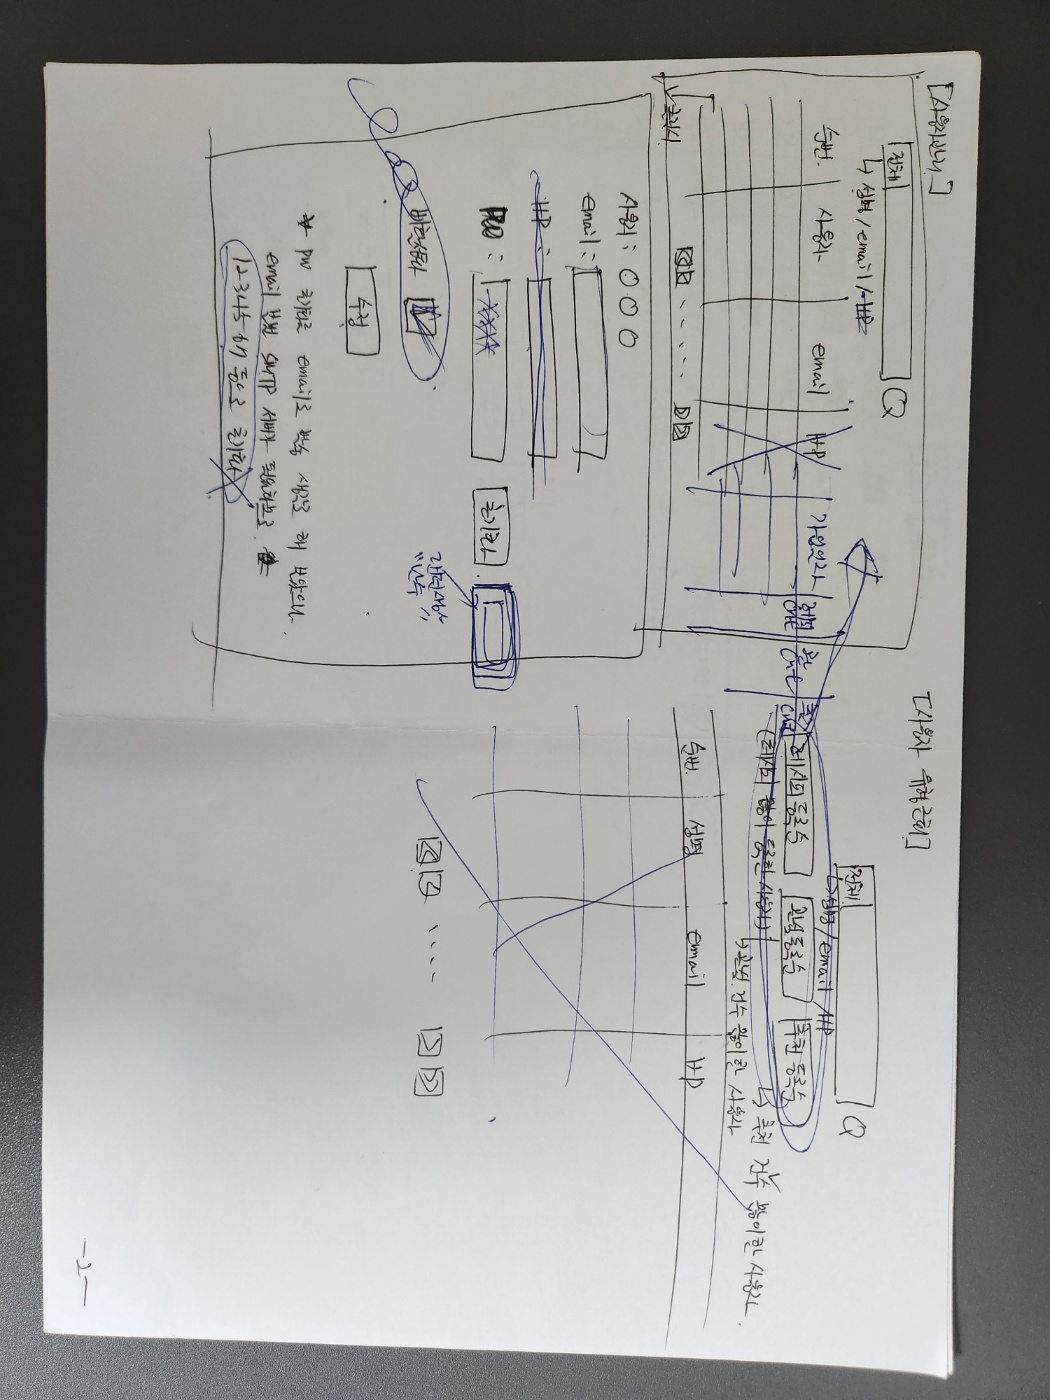 [사용자관리]
전체
↳ 성명/email/HP
순번 사용자 email HP 가입일자 레피 cnt 관 cnt 추 cnt
클릭시
사용자 : ○○○
email :
HP :
PW : **** 초기화
랜덤생성
"난수"
비활성화
수정
* PW 초기화를 email로 발송 생각도 해 보았으나
email 보낼 SMTP 서버가 필요하므로
1234567 등으로 초기화
[사용자 유형조회]
전체
↳ 성명/email/HP
레시피 등록순 관심등록순 추천 등록순
(레시피 많이 등록한 사용자)
↳ 관심 건수 많이한 사용자
↳ 추천 건수 많이한 사용자
순번 성명 email HP
-2-